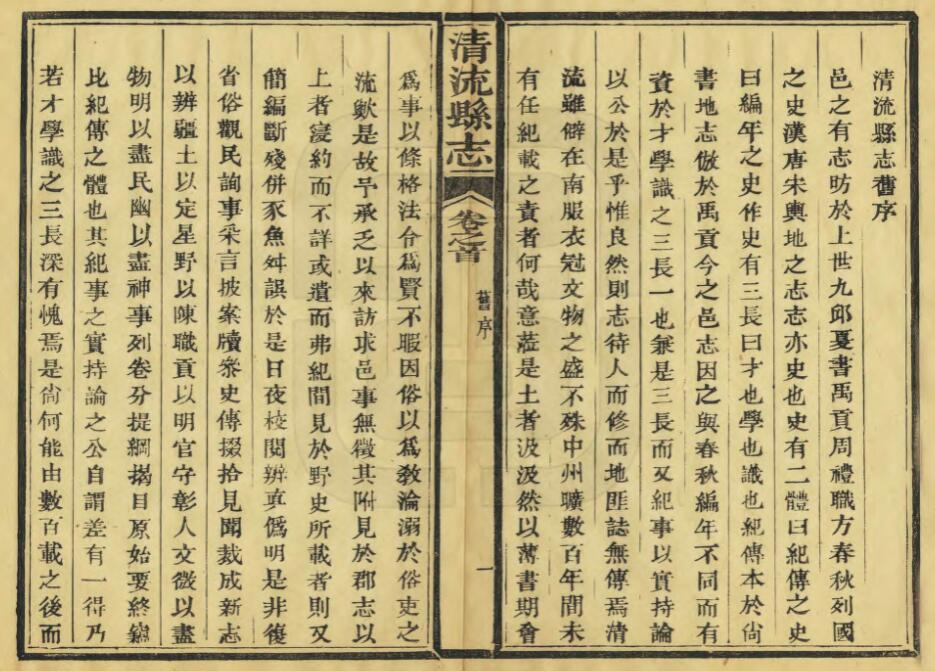 清流縣志舊序
邑之有志昉於上世九邱夏書禹貢周禮職方春秋列國
之史漢唐宋輿地之志志亦史也史有二體曰紀傳之史
曰編年之史作史有三長曰才也學也識也紀傳本於尙
書地志倣於禹貢今之邑志因之與春秋編年不同而有
資於才學識之三長一也兼是三長而又紀事以實持論
以公於是乎惟良然則志待人而修而地匪誌無傳焉清
流雖僻在南服衣冠文物之盛不殊中州曠數百年間未
有任紀載之責者何哉意蒞是土者汲汲然以薄書期會
清流縣志
卷之首
舊序
一
爲事以條格法令爲賢不暇因俗以爲敎淪溺於俗吏之
流歟是故予承乏以來訪求邑事無徵其附見於郡志以
上者寔約而不詳或遺而弗紀間見於野史所載者則又
簡編斷殘併豕魚舛誤於是日夜校閱辨眞僞明是非復
省俗觀民詢事采言披案牘叅史傳掇拾見聞裁成新志
以辨疆土以定星野以陳職貢以明官守彰人文微以盡
物明以盡民幽以盡神事列卷分提綱揭目原始要終總
比紀傳之體也其紀事之實持論之公自謂差有一得乃
若才學識之三長深有愧焉是尙何能由數百載之後而